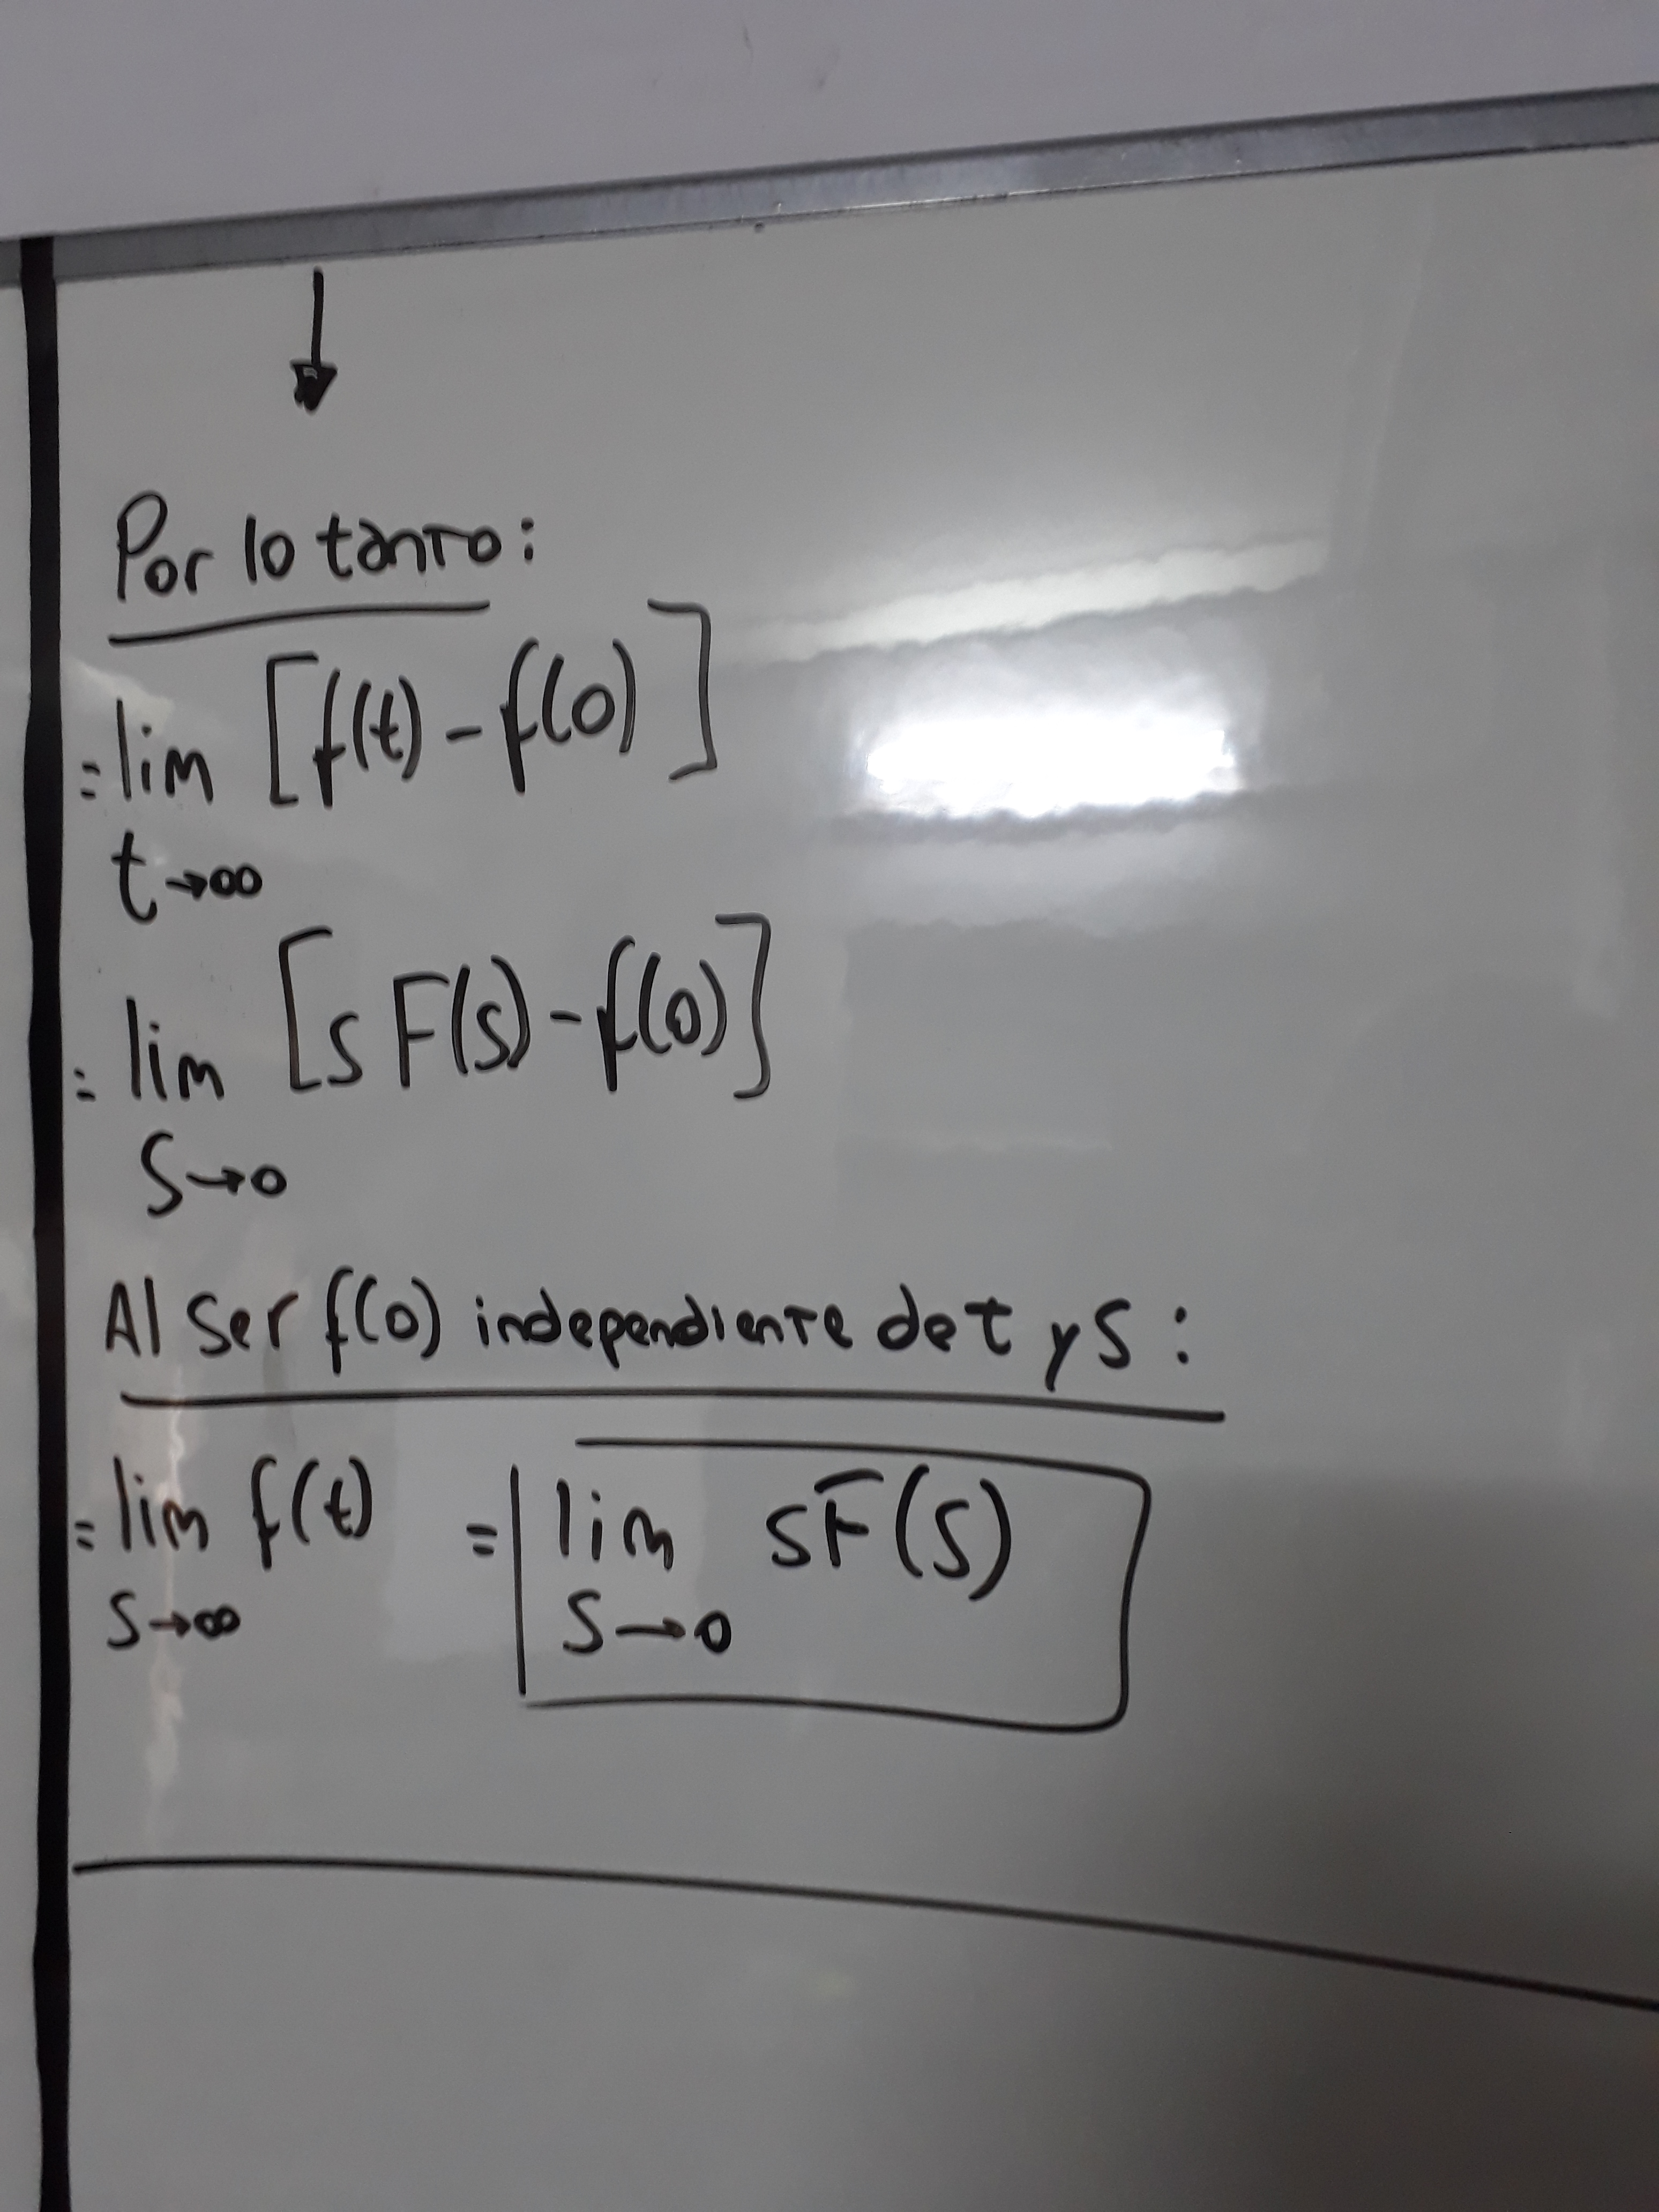 Por lo tanto:
= lim [f(t) - f(0)]
t→∞
= lim [s F(s) - f(0)]
S→0
Al ser f(0) independiente de t y S:
= lim f(t) = lim sF(s)
S→∞ S→0